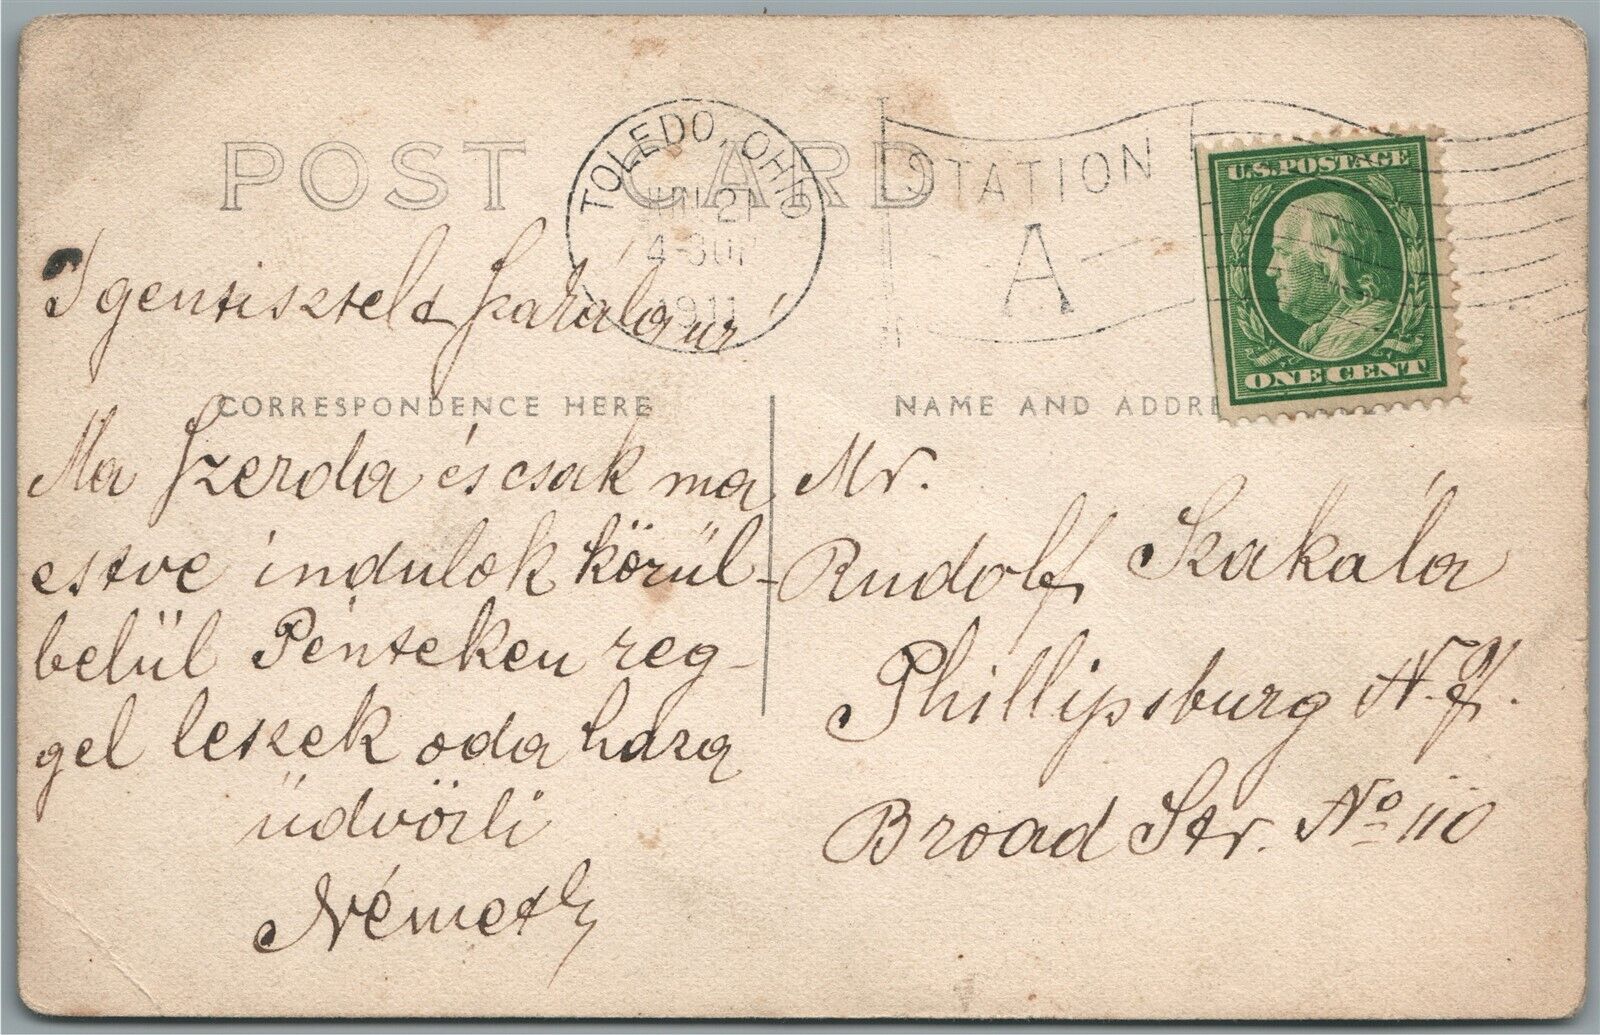 POST CARD
TOLEDO, OHIO
JUN 21
4-30P
1911
STATION
A
U.S. POSTAGE
ONE CENT
Igentisztelt Szakála úr!
CORRESPONDENCE HERE
NAME AND ADDRE
Ma Szerda és csak ma
estve indulok körül-
belül Pénteken reg-
gel leszek oda haza
üdvözli
Németh
Mr.
Rudolf Szakála
Phillipsburg N.J.
Broad Str. No 110